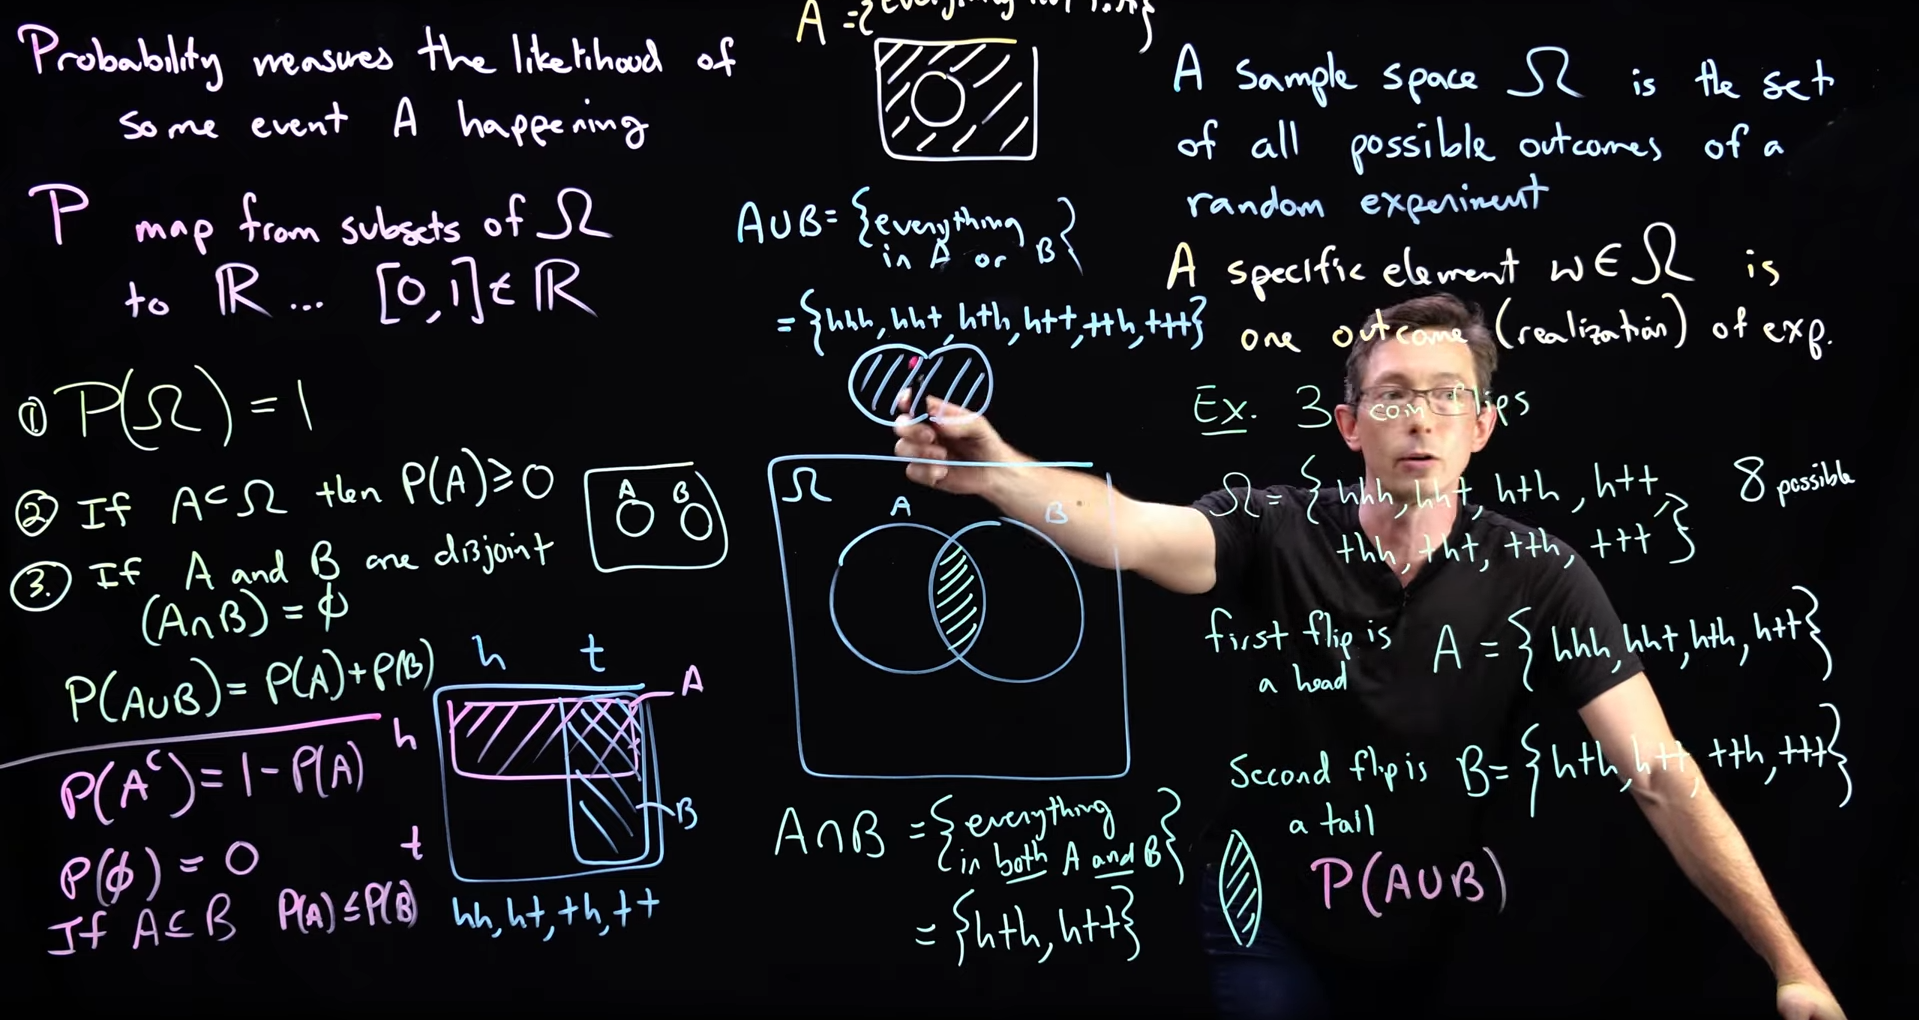 Probability measures the likelihood of
some event A happening
P map from subsets of Ω
to ℝ ... [0,1] ∈ ℝ
① P(Ω) = 1
② If A ⊂ Ω then P(A) ≥ 0
A B
③. If A and B are disjoint
(A∩B) = ϕ
P(A∪B) = P(A) + P(B)
P(Aᶜ) = 1 - P(A)
P(ϕ) = 0
If A ⊆ B P(A) ≤ P(B)
h t
h
t
A
B
hh, ht, th, tt
A = {everything not in A}
A∪B = {everything
in A or B}
= {hhh, hht, hth, htt, tth, ttt}
Ω
A B
A∩B = {everything
in both A and B}
= {hth, htt}
A sample space Ω is the set
of all possible outcomes of a
random experiment
A specific element w ∈ Ω is
one outcome (realization) of exp.
Ex. 3 coin flips
Ω = {hhh, hht, hth, htt, 8 possible
thh, tht, tth, ttt}
first flip is A = {hhh, hht, hth, htt}
a head
Second flip is B = {hth, htt, tth, ttt}
a tail
P(A∪B)